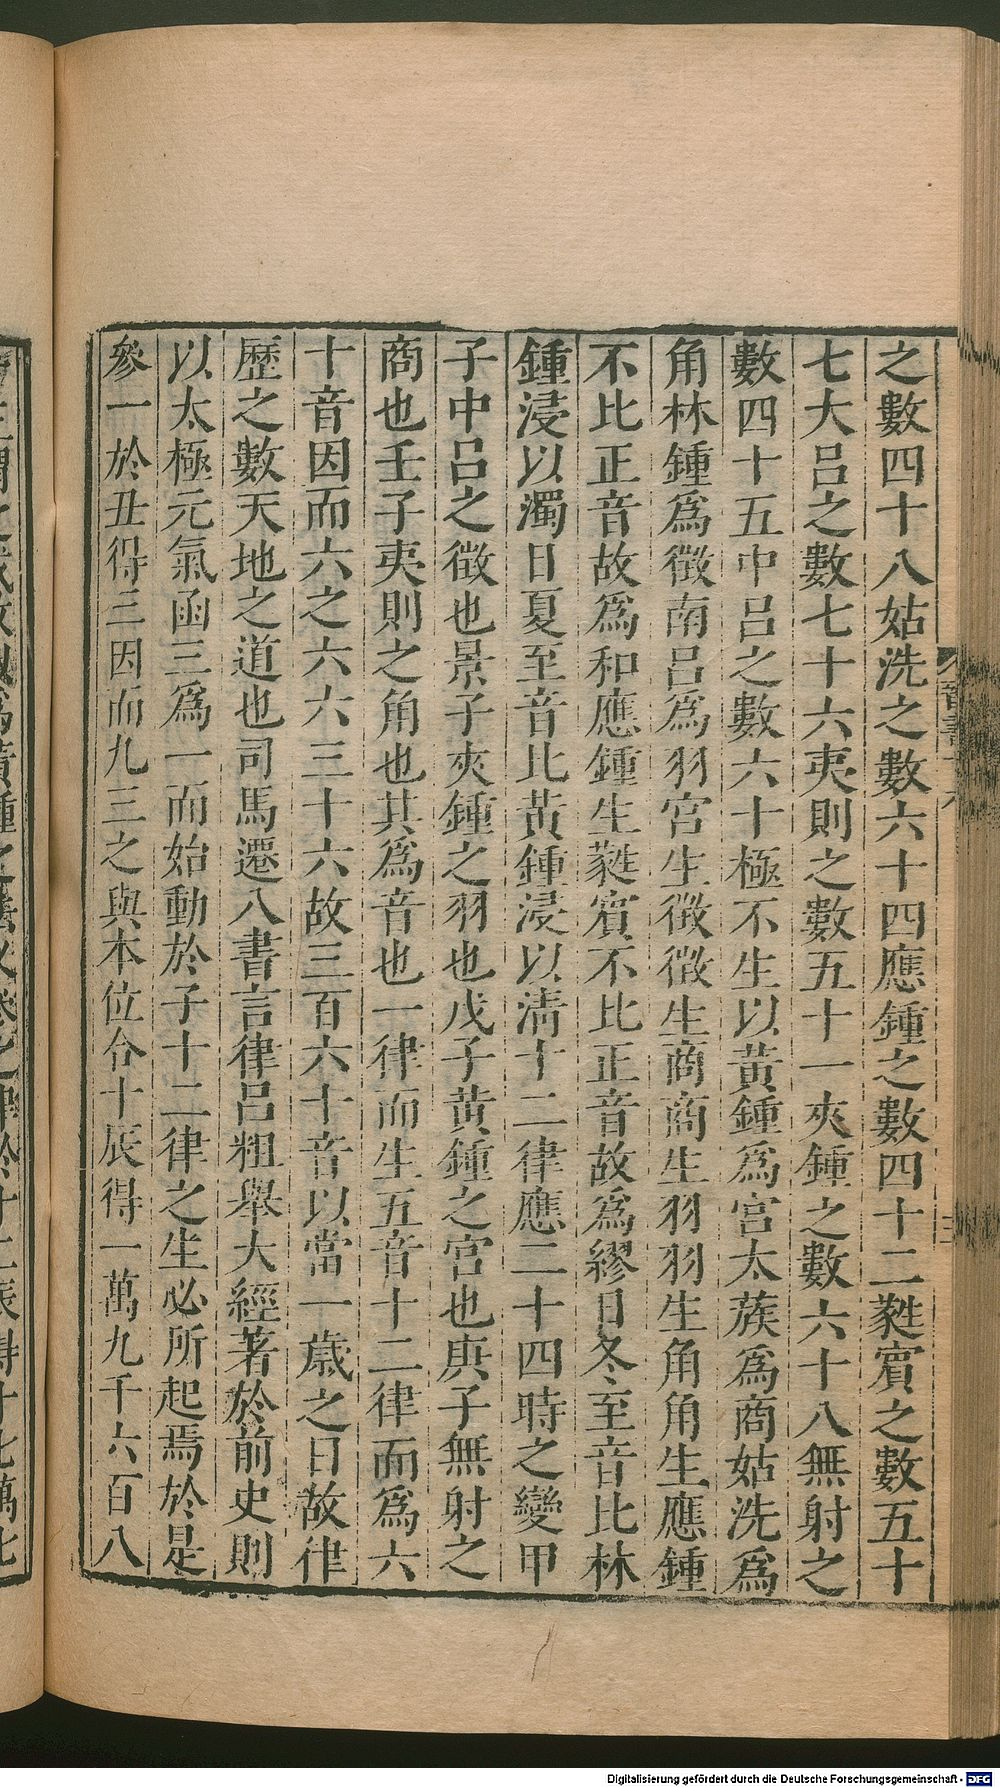 之數四十八姑洗之數六十四應鍾之數四十二蕤賓之數五十
七大呂之數七十六夷則之數五十一夾鍾之數六十八無射之
數四十五中呂之數六十極不生以黃鍾爲宮太蔟爲商姑洗爲
角林鍾爲徵南呂爲羽宮生徵徵生商商生羽羽生角角生應鍾
不比正音故爲和應鍾生蕤賓不比正音故爲繆日冬至音比林
鍾浸以濁日夏至音比黃鍾浸以淸十二律應二十四時之變甲
子中呂之徵也景子夾鍾之羽也戊子黃鍾之宮也庚子無射之
商也壬子夷則之角也其爲音也一律而生五音十二律而爲六
十音因而六之六六三十六故三百六十音以當一歲之日故律
歷之數天地之道也司馬遷八書言律呂粗舉大經著於前史則
以太極元氣函三爲一而始動於子十二律之生必所起焉於是
參一於丑得三因而九三之與本位合十辰得一萬九千六百八
Digitalisierung gefördert durch die Deutsche Forschungsgemeinschaft - DFG